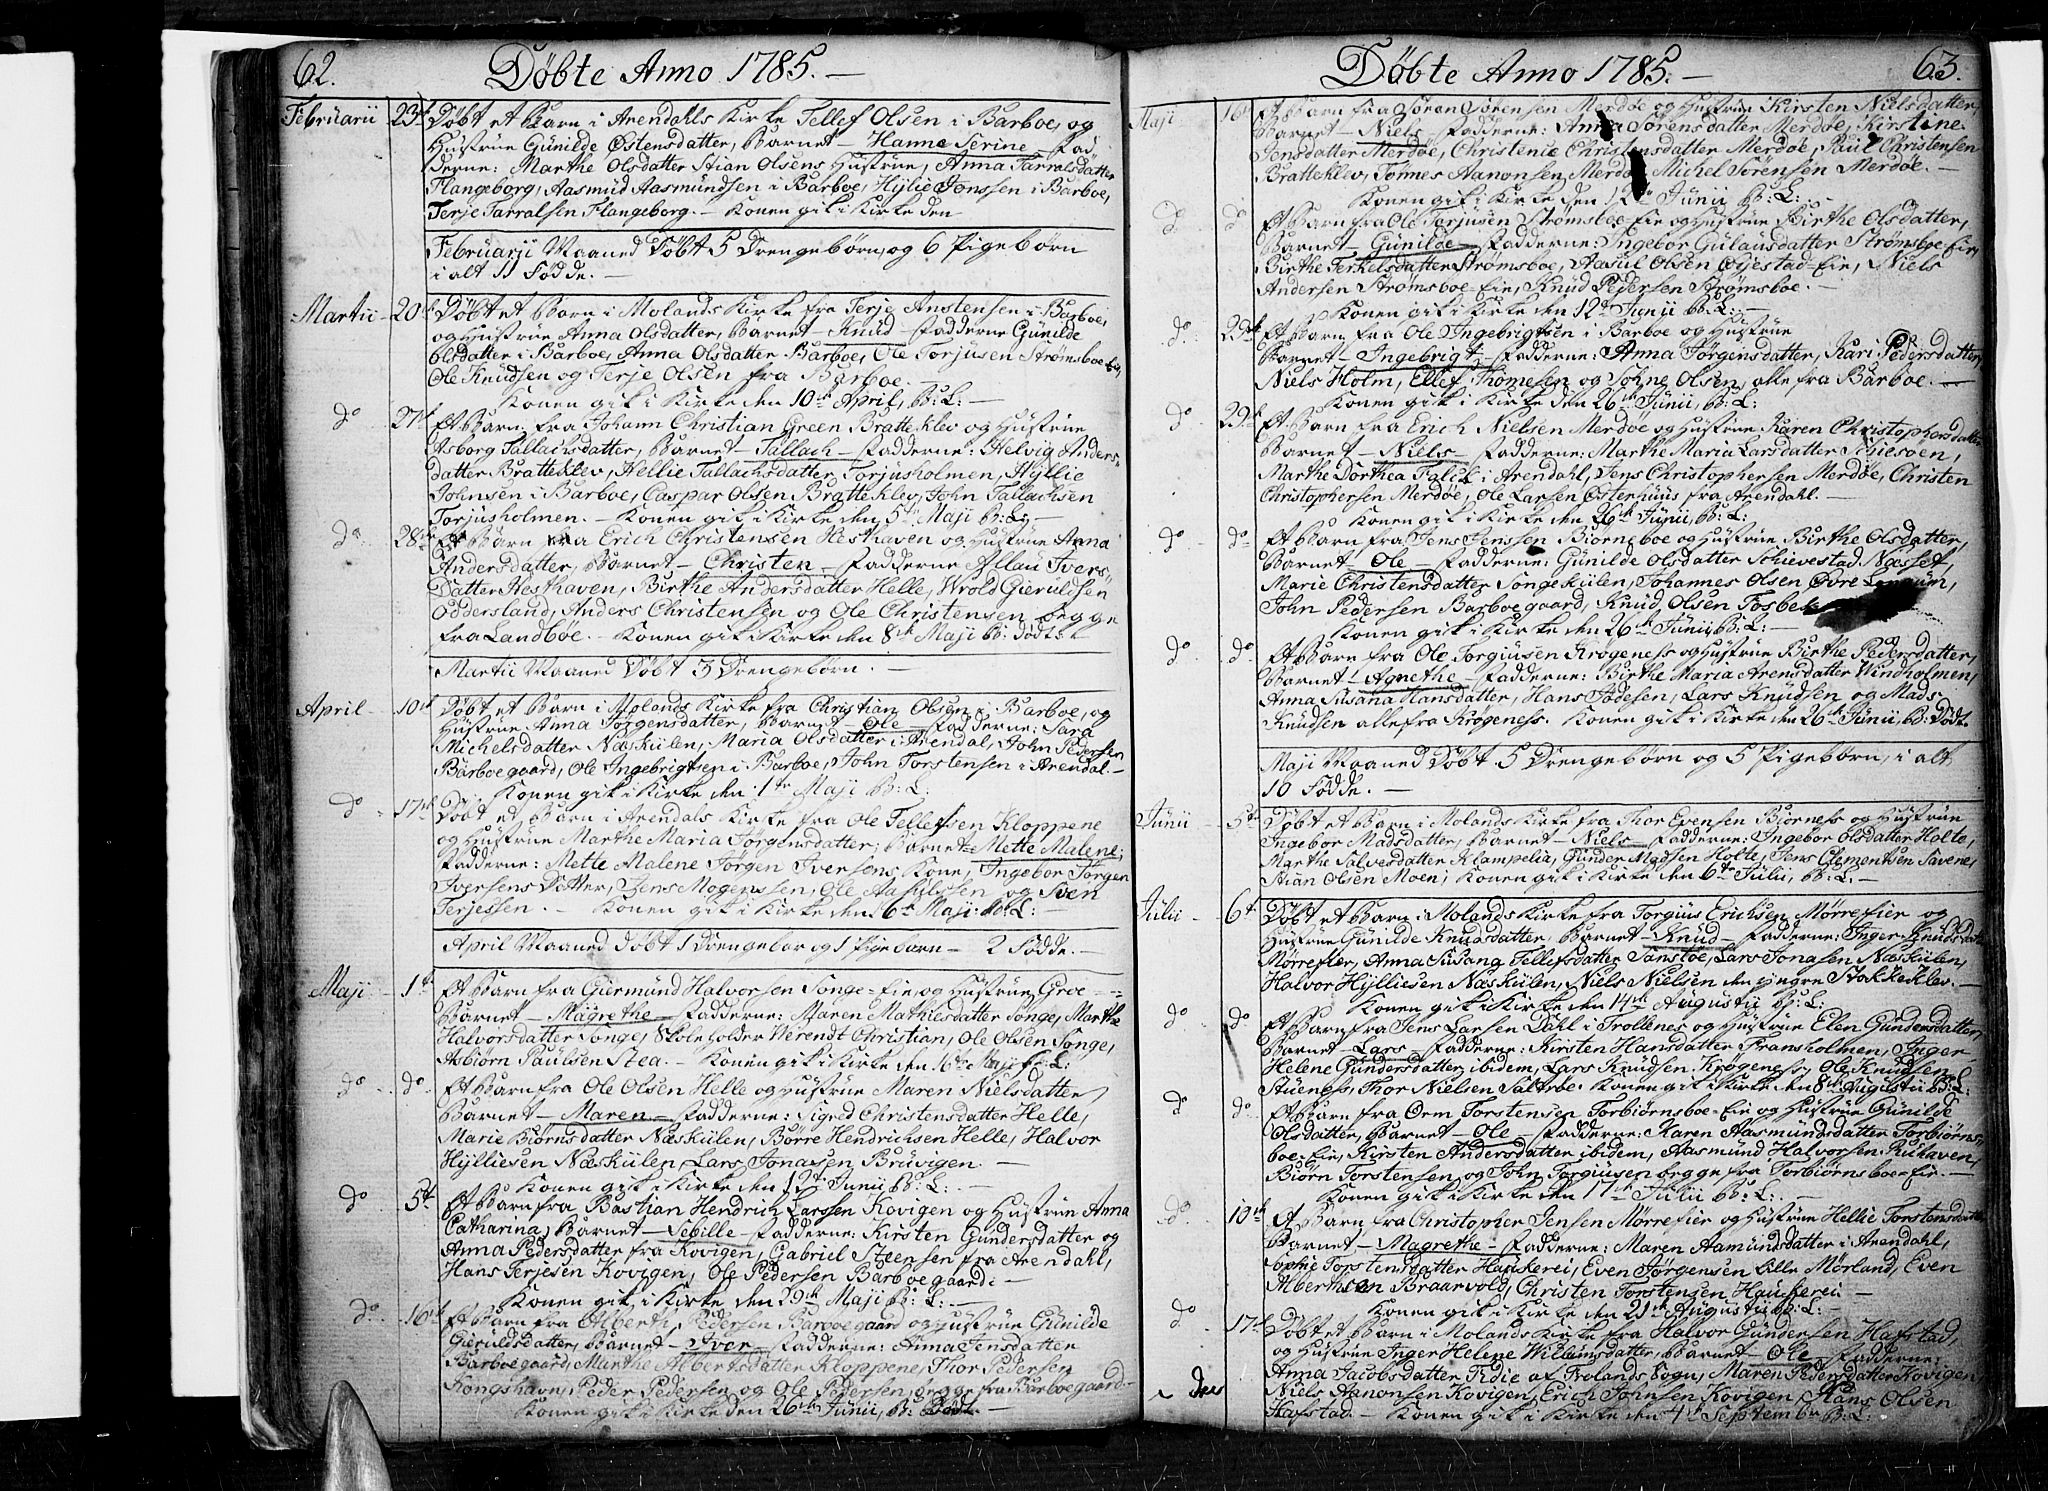 62.
Døbte Anno 1785. —
Februarii 23de Døbt et Barn i Arendahls Kirke Tellef Olsen i Barboe, og
Hustrue Gunilde Østensdatter, Barnet — Hanne Serine — Fad
derne: Marthe Olsdatter Stian Olsens Hustrue, Anna Tarralsdatter
Flangeborg, Aasmud Aasmundsen i Barboe, Hylie Jonssen i Barboe,
Terje Tarralsen Flangeborg. — Konen gik i Kirke den
Februarii Maaned Døbt 5 Drengebørn, og 6 Pigebørn
i alt 11 Fødde. —
Martii — 20de Døbt et Barn i Molands Kirke fra Terje Anstensen i Barboe,
og Hustrue Anna Olsdatter, Barnet — Knud — Fadderne Gunilde
Olsdatter i Barboe, Anna Olsdatter Barboe, Ole Torjusen Strømsboe Eie,
Ole Knudsen og Terje Olsen fra Barboe. —
Konen gik i Kirke den 10de April, B: L: —
do 27de Et Barn fra Johann Christian Green Bratteklev og Hustrue
Asborg Tallachsdatter, Barnet — Tallach — Fadderne: Helvig Anders-
datter Bratteklev, Nellie Tallachsdatter Torjusholmen, Hyllie
Johnsen i Barboe, Caspar Olsen Bratteklev, John Tallachsen
Torjusholmen. — Konen gik i Kirke den 5te Maji B: L: —
do 28de Et Barn fra Erich Christensen Hesthaven og Hustrue Anna
Andersdatter, Barnet — Christen — Fadderne Aslau Ivers-
Datter Hesthaven, Birthe Andersdatter Helle, Wrold Gieruldsen
Odderstand, Anders Christensen og Ole Christensen begge
fra Landbøe. — Konen gik i Kirke den 8de Maji B: Født
Martii Maaned Døbt 3 Drengebørn. —
April — 10de Døbt et Barn i Molands Kirke fra Christian Olsen i Barboe, og
Hustrue Anna Jørgensdatter, Barnet — Ole — Fadderne: Sara
Michelsdatter Næskilen, Maria Olsdatter i Arendal, John Pedersen
Barboegaard, Ole Ingebrigtsen i Barboe, John Torstensen i Arendal —
Konen gik i Kirke den 1te Maji B: L:
do 17de Døbt et Barn i Arendals Kirke fra Ole Tellefsen Kloppene
og Hustrue Marthe Maria Jørgensdatter; Barnet — Mette Malene;
Fadderne: Mette Malene Jørgen Iversens Kone, Ingebor Jørgen
Iversens Datter, Jens Mogenssen, Ole Aasulssen og Sven
Terjessen. — Konen gik i Kirke den 16de Maji B: L: —
April Maaned Døbt 1 Drengebar og 1 Pigebarn — 2 Fødde. —
Maji — 1te Et Barn fra Giermund Halvorsen Songe-Eie, og Hustrue Groe ---
Barnet — Magrethe — Fadderne: Maren Mathiesdatter Songe, Marthe
Halvorsdatter Songe, Skoleholder Verendt Christian, Ole Olsen Songe,
Asbiørn Paulsen Stea. — Konen gik i Kirke den 16de Maji B: L:
do do Et Barn fra Ole Olsen Helle og Hustrue Maren Nielsdatter
Barnet — Maren — Fadderne: Sigred Christensdatter Helle,
Marie Biørnsdatter Næskiilen, Børre Hendrichsen Helle, Halvor
Hylliesen Næskiilen, Lars Jonassen Bruvigen. —
Konen gik i Kirke den 12te Junii B: L: —
do 5te Et Barn fra Bastian Hendrich Larssen Kovigen og Hustrue Anna
Catharina, Barnet — Sebille — Fadderne: Kirsten Gundersdatter og
Anna Pedersdatter fra Kovigen, Gabriel Steensen fra Arendahl,
Hans Terjesen Kovigen, Ole Pedersen Barboegaard. —
Konen gik i Kirke den 29de Maji B: L: —
do 16de Et Barn fra Alberth Pedersen Barboegaard og Hustrue Gunilde
Gieruldsdatter, Barnet — Iver — Fadderne: Anna Jensdatter
Barboegaard, Marthe Albertsdatter Kloppene, Thor Pedersen
Kongshavn, Peder Pedersen og Ole Pedersen, begge fra Barboegaard —
Konen gik i Kirke den 26de Junii, B: Født.
63.
Døbte Anno 1785. —
Maji 16de Et Barn fra Søren Sørensen Merdøe og Hustrue Kirsten Nielsdatter,
Barnet — Niels — Fadderne: Anna Sørensdatter Merdøe, Kirstine
Jensdatter Merdøe, Christenie Christensdatter Merdøe, Paul Christensen
Bratteklev, Tønnes Aanonsen Merdøe, Michel Sørensen Merdøe. —
Konen gik i Kirke den 12te Junii B: L: —
do do Et Barn fra Ole Torjusen Strømsboe-Eie og Hustrue Birthe Olsdatter,
Barnet — Gunilde — Fadderne: Ingebor Gulausdatter Strømsboe Eie,
Birthe Terkelsdatter Strømsboe, Aasul Olsen Øijestad-Eie, Niels
Andersen Strømsboe-Eie, Knud Pedersen Strømsboe. —
Konen gik i Kirke den 12te Junii B: L: —
do 29de Et Barn fra Ole Ingebrigtsen i Barboe og Hustrue
Barnet — Ingebrigt — Fadderne: Anna Jørgensdatter, Kari Pedersdatter,
Niels Holm, Ellef Thomesen og Søhne Olsen, alle fra Barboe. —
Konen gik i Kirke den 26de Junii, B: L:
do 29de Et Barn fra Erich Nielsen Merdøe og Hustrue Karen Christophersdatter
Barnet — Niels — Fadderne: Marthe Maria Larsdatter Schiesøen,
Marthe Dorthea Falck i Arendahl, Jens Christophersen Merdøe, Christen
Christophersen Merdøe, Ole Larsen Østerhuus fra Arendahl. —
Konen gik i Kirke den 26de Junii, B: L:
do do Et Barn fra Jens Jenssen Biørneboe og Hustrue Birthe Olsdatter,
Barnet — Ole — Fadderne: Gunilde Olsdatter Schievestad Næsset,
Marie Christensdatter Songekiilen, Johannes Olsen Øvre
John Pedersen Barboegaard, Knud Olsen
Konen gik i Kirke den 26de Junii, B: L: —
do do Et Barn fra Ole Torgiusen Krøgeness og Hustrue Birthe Pedersdatter,
Barnet — Agnethe — Fadderne: Birthe Maria Arensdatter Windholmen,
Anna Susana Hansdatter, Hans Todesen, Lars Knudsen og Mads
Knudsen alle fra Krøgeness. Konen gik i Kirke den 26de Junii, B: Født.
Maji Maaned Døbt 5 Drengebørn og 5 Pigebørn, i alt
10 Fødde. —
Junii 5te Døbt et Barn i Molands Kirke fra Thor Evensen Biørness og Hustrue
Ingebor Madsdatter, Barnet — Niels — Fadderne: Ingebor Olsdatter Holte,
Marthe Salvesdatter Klampelia, Gunder Madsen Holte, Jens Clementsen Savene,
Stian Olsen Moen; Konen gik i Kirke den 6te Julii, B: L. —
Julii — 6te Døbt et Barn i Molands Kirke fra Torgius Erichsen Mørrefier og
Hustrue Gunilde Knudsdatter, Barnet — Knud — Fadderne: Inger Knudsdatter
Mørrefier, Anna Susana Tellefsdatter Sanstøe, Lars Jonasen Næskiilen,
Halvor Hylliesen Næskiilen, Niels Nielsen den yngre Stokkeklev. —
Konen gik i Kirke den 14de Augustii B: L:
do do Et Barn fra Jens Larsen Dahl i Trollenes og Hustrue Elen Gundersdatter,
Barnet — Lars — Fadderne: Kirsten Hansdatter Fransholmen, Inger
Helene Gundersdatter ibidem, Lars Knudsen Krøgeness, Ole Knudsen
Stueness, Thor Nielsen Saltrøe. Konen gik i Kirke den 8de Augustii B: L:
do do Et Barn fra Orm Torstensen Torbiørnsboe-Eie og Hustrue Gunilde
Olsdatter, Barnet — Ole — Fadderne: Karen Aasmundsdatter Torbiørns-
boe-Eie, Kirsten Andersdatter ibidem, Aasmund Halvorsen Rukhaven,
Biørn Torstensen, og John Torgiusen begge fra Torbiørnsboe-Eie. —
Konen gik i Kirke den 17de Julii B: L: —
do 10de Et Barn fra Christopher Jensen Mørrefier og Hustrue Hellie Torstensdatter
Barnet — Magrethe — Fadderne: Maren Aamundsdatter i Arendahl,
Sophie Torstensdatter Hauskerei, Even Jørgensen Lille Mørland, Even
Alberthsen Braarvold, Christen Torstensen Hauskerei —
Konen gik i Kirke den 21de Augustii B: L:
do 17de Døbt et Barn i Molands Kirke fra Halvor Gundersen Hafstad,
og Hustrue Inger Helene Willumsdatter, Barnet — Ole — Fadderne:
Anna Jacobsdatter Tidie af Frolands Sogn, Maren Pedersdatter Kovigen,
Niels Aanonsen Kovigen, Erich Johnsen Kovigen, Hans Olsen
Hafstad. — Konen gik i Kirke den 4de Septembr B: L: